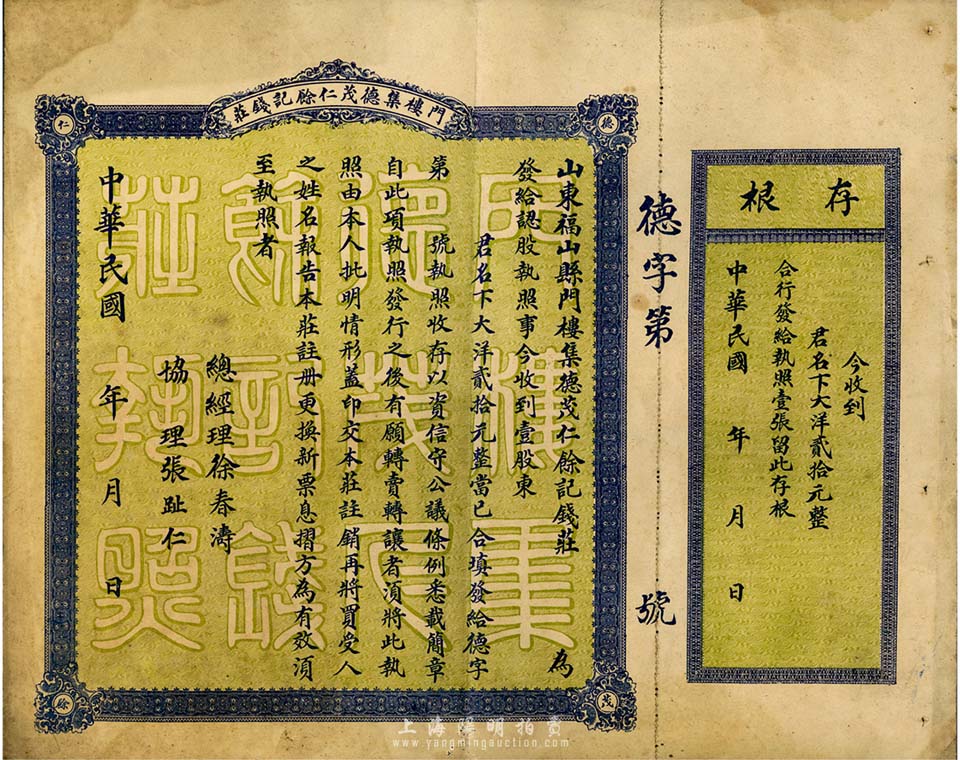 存根
今收到
君名下大洋貳拾元整
合行發給執照壹張留此存根
中華民國 年 月 日
德字第 號
門樓集德茂仁餘記錢莊
德
仁
茂
餘
山東福山縣門樓集德茂仁餘記錢莊 為
發給認股執照事今收到壹股東
君名下大洋貳拾元整當已合填發給德字
第 號執照收存以資信守公議條例悉載簡章
自此項執照發行之後有願轉賣轉讓者須將此執
照由本人批明情形蓋印交本莊註銷再將買受人
之姓名報告本莊註册更換新票息摺方為有效須
至執照者
總經理徐春濤
協理張趾仁
中華民國 年 月 日
上海陽明拍賣
www.yangmingauction.com